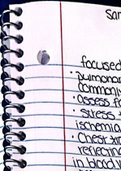 Sar
focused
• pulmonar
commonly
• assess fo
• stress t
ischemia
• chest x-ra
reflectin
in blood v